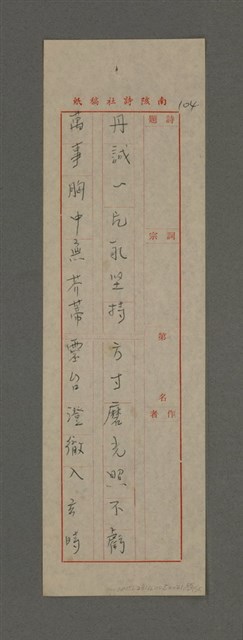 南陔詩社稿紙
104
詩題
詞宗
第 名
作者
丹誠一片永堅持方寸磨光照不虧
萬事胸中無芥蒂靈台澄徹入玄時